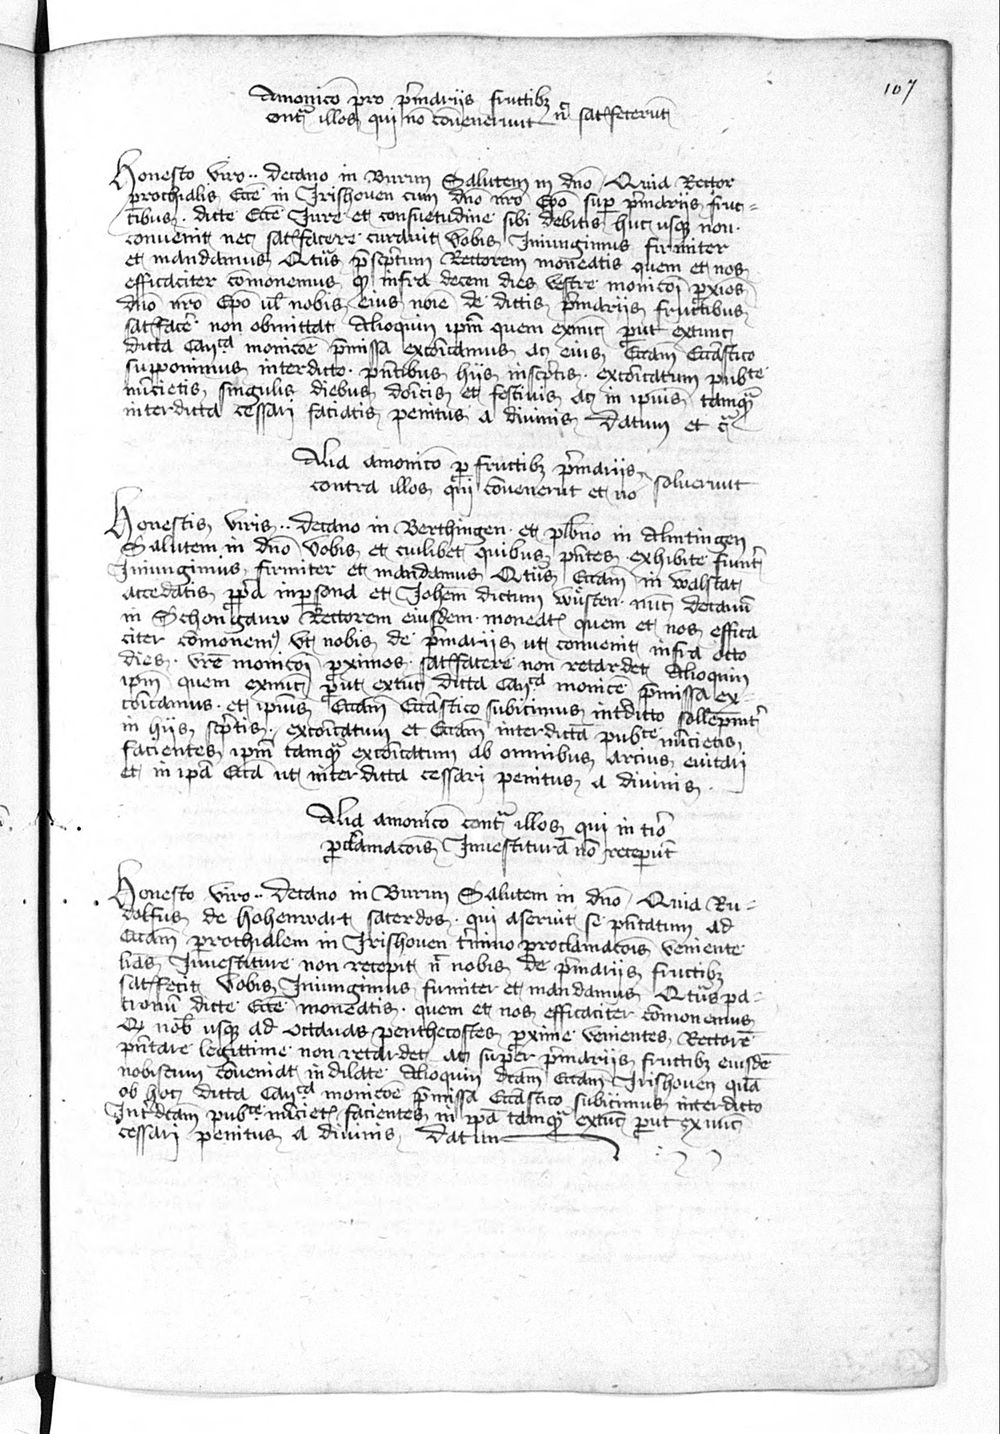 107
Amonicō pro p̄mariis fructibꝫ
contᵃ illos qui nō cōuenerunt n̄ satᵗfecerūt
Honesto viro ·· decano in Burun Salutem in dn̄o / Quia Rector
prochialis Ecc̄e in Irishouen cum dn̄o nr̄o Ep̄o sup p̄mariis fruc=
tibus · dicte Ecc̄e Iure et consuetudine sibi debitis huc usqꝫ non ·
conuenit nec satᵗfacere curauit vobis Iniungimus firmiter
et mandamus Qtus p̄scp̄tum Rectorem moneatis quem et nos
efficaciter cōmonemus qꝫ infra decem dies vestre monicōi pxios
dn̄o nr̄o Ep̄o ul nobis eius noīe de dictis p̄mariis fructibus
satᵗfacē non obmittat Alioquin ip̄m quem exnūc put extunc
dicta Canᶜᵃ monicōe p̄missa excōicamus ac eius Ecc̄am Ecc̄astico
supponimus interdicto · pn̄tibus hiis inscp̄tis · excōicatum pubᶜᵉ
nūcietis singulis diebus dōicis et festiuis ac in ipius tamqᵃ
interdicta cessari faciatis penitus a diuinis Datum et cᵃ
Alia amonicō p fructibꝫ p̄mariis
contra illos qui cōuenerūt et nō soluerunt
Honestis viris ·· decano in Berthingen · et plb̄no in Almtingen
Salutem in dn̄o vobis et cuilibet quibus pn̄tes exhibite fiunt
Iniungimus firmiter et mandamus Qtus Ecc̄am in walstat
accedatis ppᵃ inpersona et Joh̄em dictum wůsten · nūc decanū
in Schongauw Rectorem eiusdem moneatᵗ quem et nos effica
citer cōmonemꝰ vt nobis de p̄mariis ut conuenit infra octo
dies · vr̄e monicōi pximos · satᵗfacere non retardet Alioquin
ip̄m quem exnūc put extūc dicta Canᶜᵃ monicē p̄missa ex=
cōicamus · et ipius Ecc̄am Ecc̄astico subicimus intdicto sollepmitᵗ
in hiis scp̄tis · excōicatum et Ecc̄am interdictā pubᶜᵉ nūcietis
facientes ip̄m tamqᵃ excōicatum ab omnibus arcius euitari
et in ip̄a Ecc̄a ut interdicta cessari penitus a diuinis ·
Alia amonicō contᵃ illos qui in tīo
pclamacōis Inuestiturā nō recepūt
Honesto viro ·· decano in Burun Salutem in dn̄o / Quia Ru=
dolfus de Hohenwart sacerdos · qui aseruit se pn̄tatum ad
Ecc̄am prochialem in Irishouen tmino proclamacōis veniente
lr̄as Inuestiture non recepit n̄ nobis de p̄mariis fructibꝫ
satᵗfecit vobis Iniungimus firmiter et mandamus Qtus pa=
tronū dicte Ecc̄e moneatis · quem et nos efficaciter cōmonemus
Qꝫ nob̄ usqꝫ ad octauas penthecostes pxime venientes Rectorē
pn̄tare legittime non retardet ac super p̄mariis fructibꝫ eiusdē
nobiscum cōueniat indilate Alioquin dc̄am Ecc̄am Irishouen quā
ob hoc dicta Canᶜᵃ monicōe p̄missa Ecc̄astico subicimus interdicto
Intdc̄am pubᶜᵉ nūcietᵗ facientes in ip̄a tamqᵃ extūc put exnūc
cessari penitus a diuinis Datum